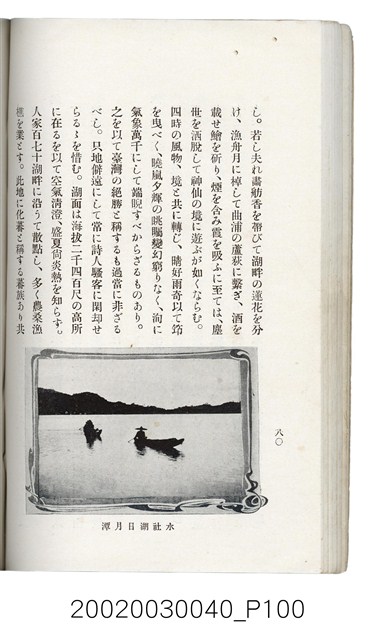 し。若し夫れ畵舫香を帶びて湖畔の蓮花を分
け、漁舟月に棹して曲浦の蘆荻に繫ぎ、酒を
載せ鱠を斫り、煙を含み霞を吸ふに至ては、塵
世を洒脫して神仙の境に遊ぶが如くならむ。
四時の風物、境と共に轉じ、晴好雨奇以て筇
を曳べく、曉嵐夕輝の眺矚變幻窮りなく、洵に
氣象萬千にして端睨すべからざるものあり。
之を以て臺灣の絕勝と稱するも過當に非ざる
べし。只地僻遠にして常に詩人騷客に閑却せ
らるゝを惜む。湖面は海拔二千四百尺の高所
に在るを以て空氣淸澄、盛夏尙炎熱を知らず。
人家百七十湖畔に沿うて散點し、多く農桑漁
樵を業とす。此地に化蕃と稱する蕃族あり共
八〇
水社湖日月潭
20020030040_P100